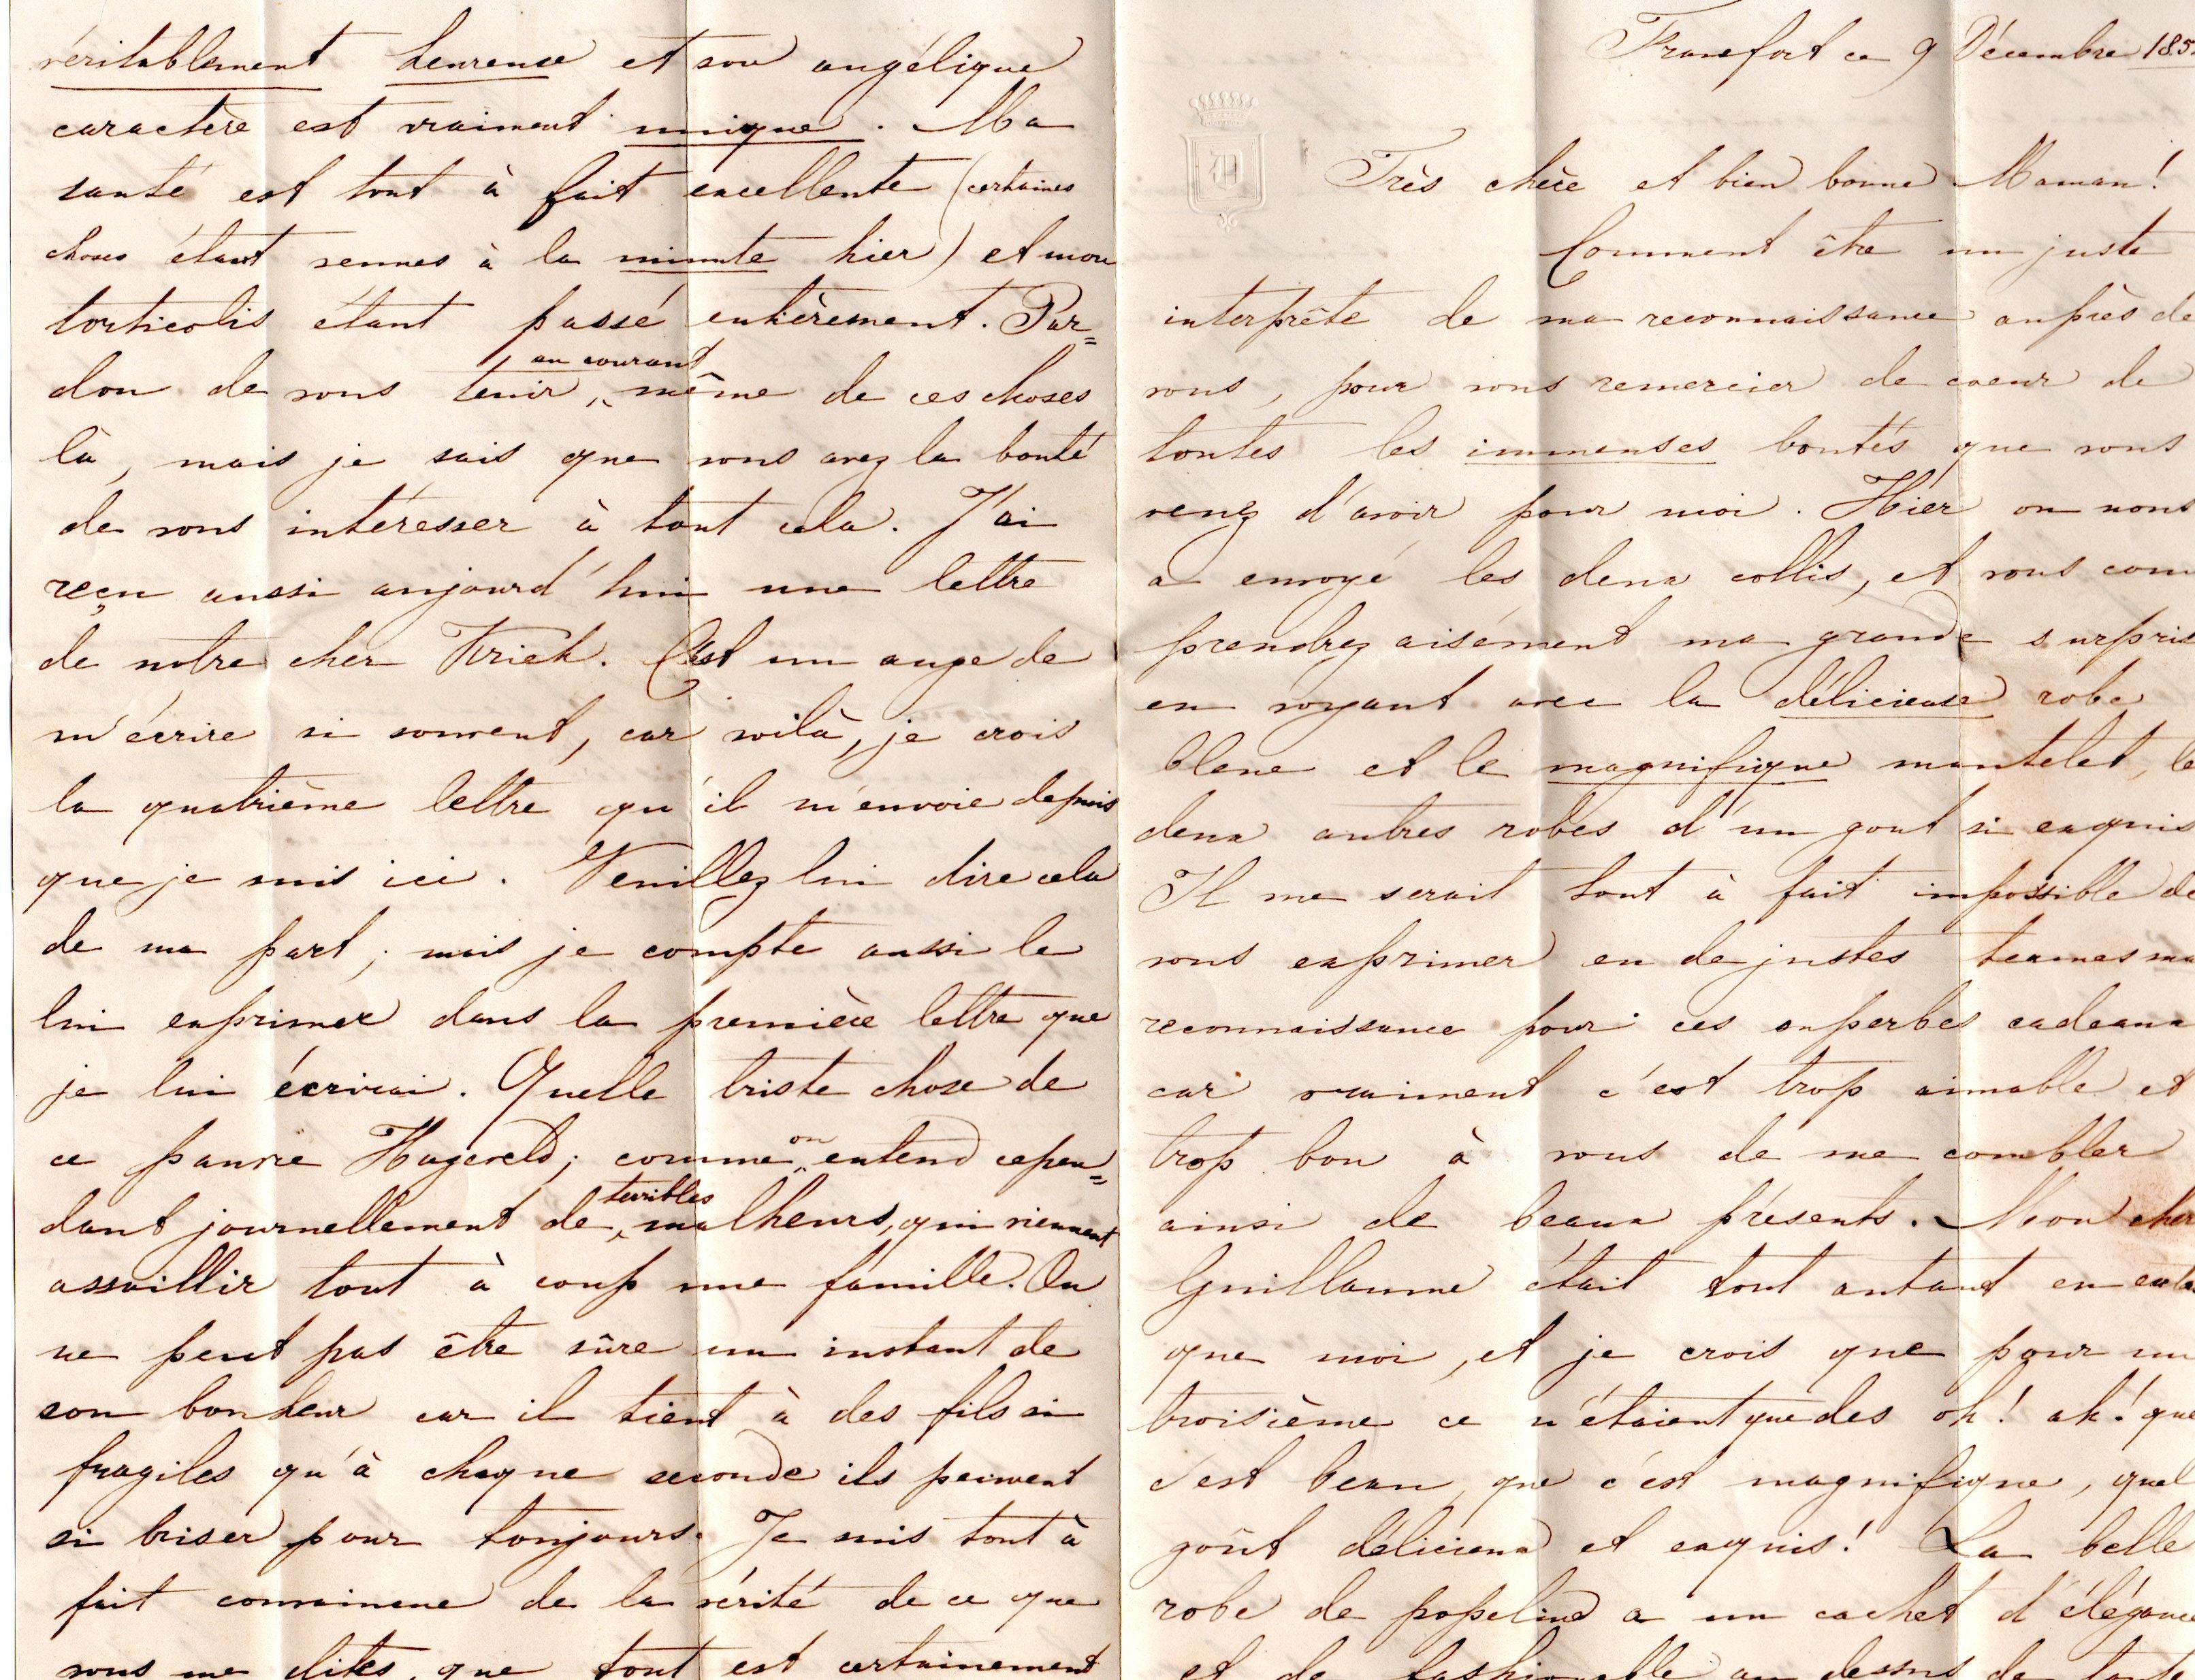 Francfort ce 9 Décembre 185
Très chère et bien bonne Maman!
Comment être un juste
interprête de ma reconnaissance auprès de
vous, pour vous remercier de coeur de
toutes les immenses bontés que vous
venez d'avoir pour moi. Hier on nous
a envoyé les deux collis, et vous com
prendrez aisément ma grande surpris
en voyant avec la délicieuse robe
bleue et le magnifique mantelet, le
deux autres robes d'un gout si exquis
Il me serait tout à fait impossible de
vous exprimer en de justes termes ma
reconnaissance pour ces superbes cadeaux
car vraiment c'est trop aimable et
trop bon à vous de me combler
ainsi de beaux présents. Mon cher
Guillaume était tout autant en exta
que moi, et je crois que pour un
troisième ce n'étaient que des oh! ah! que
c'est beau, que c'est magnifique, quel
goût délicieux et exquis! La belle
robe de popeline a un cachet d'élégance
et de fashionable au dessus de toute
véritablement heureuse et son angélique
caractère est vraiment unique. Ma
santé est tout à fait excellente (certaines
choses étant venues à la minute hier) et mon
torticolis étant passé entièrement. Par=
don de vous tenir au courant même de ces choses
là, mais je sais que vous avez la bonté
de vous intéresser à tout cela. J'ai
reçu aussi aujourd'hui une lettre
de notre cher. C'est un ange de
m'écrire si souvent, car voilà, je crois
la quatrième lettre qu'il m'envoie depuis
que je suis ici. Veuillez lui dire cela
de ma part; mais je compte aussi le
lui exprimer dans la première lettre que
je lui écrirai. Quelle triste chose de
ce pauvre; comme on entend cepen=
dant journellement de terribles malheurs, qui viennent
assaillir tout à coup une famille. On
ne peut pas être sûre un instant de
son bonheur car il tient à des fils si
fragiles qu'à chaque seconde ils peuvent
si briser pour toujours. Je suis tout à
fait convaincue de la vérité de ce que
vous me dites, que tout est certainement